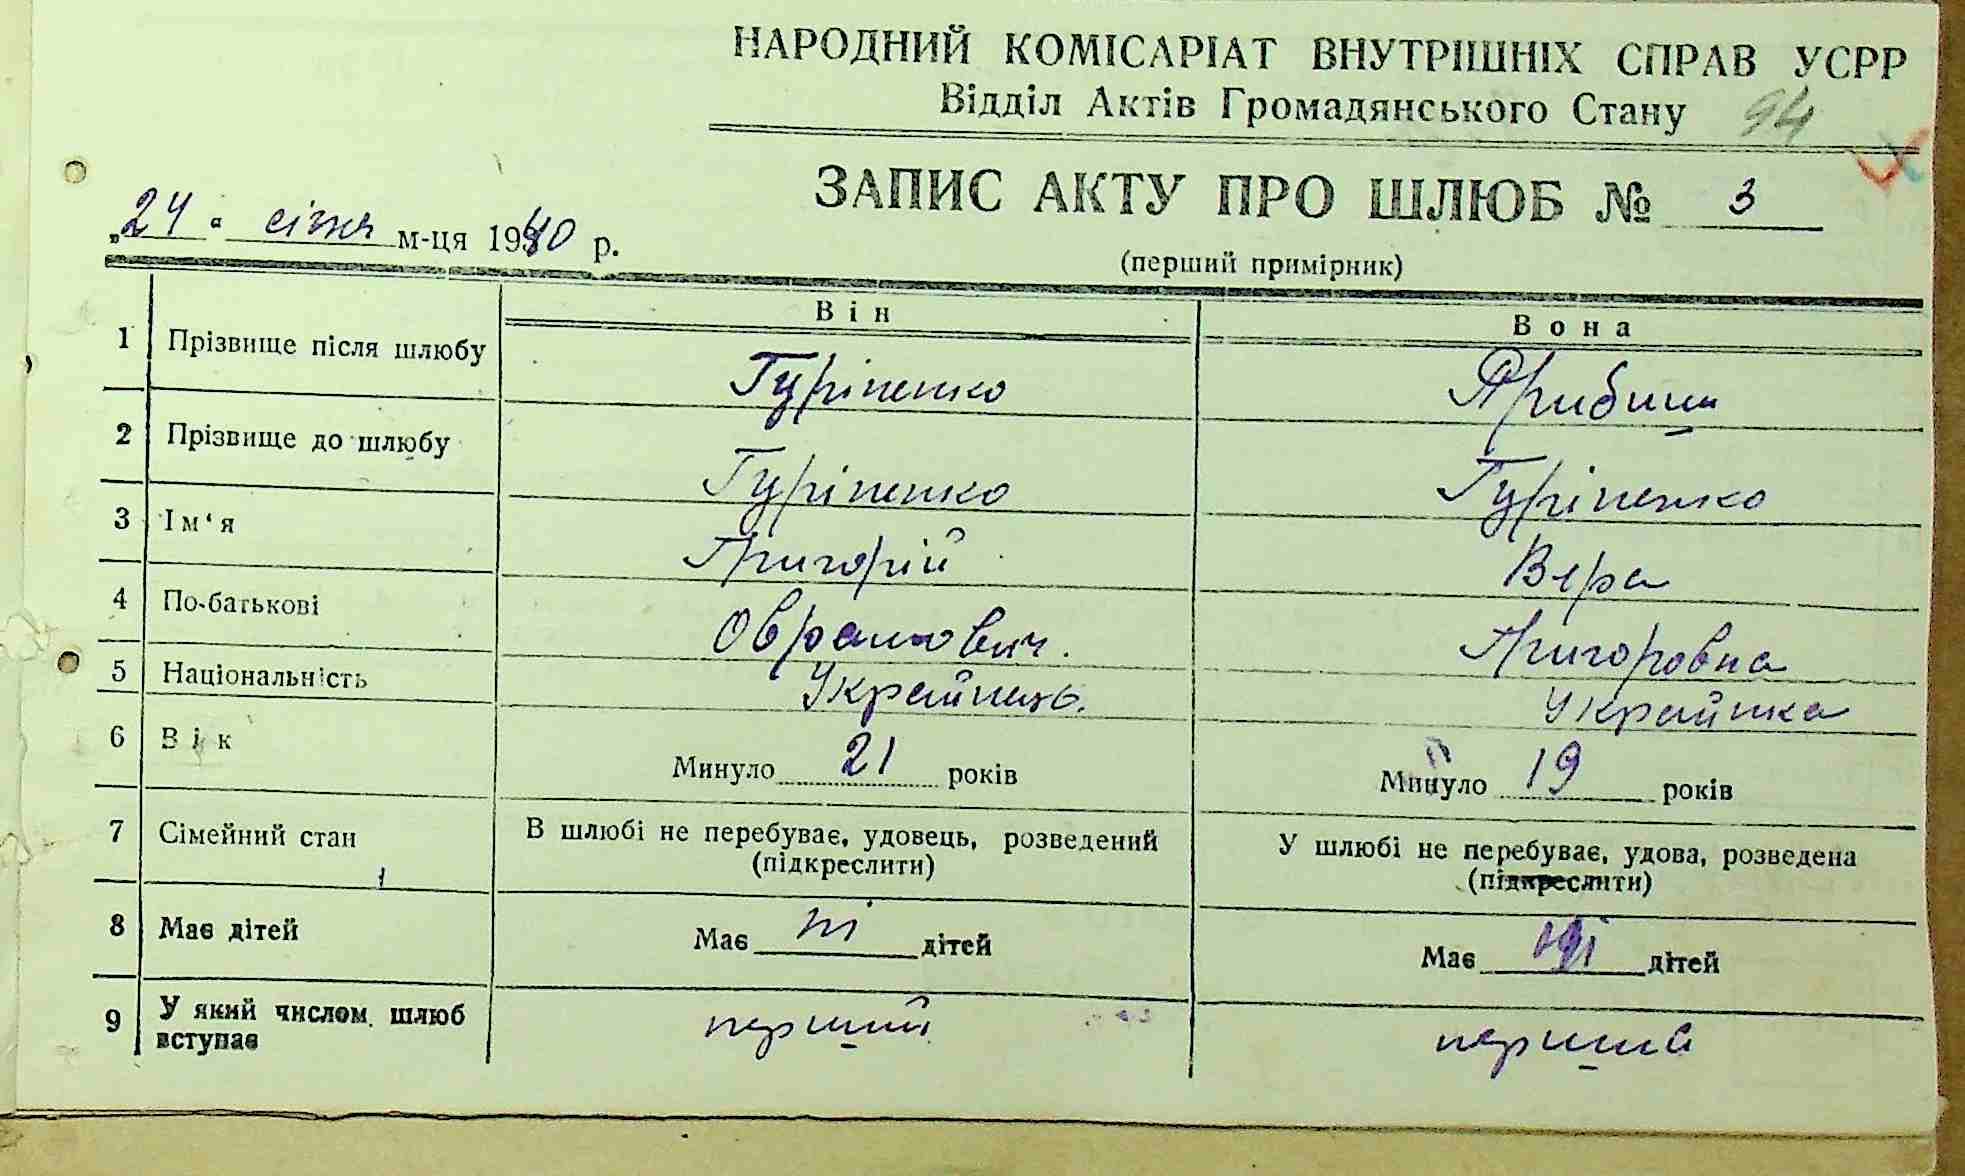 НАРОДНИЙ КОМІСАРІАТ ВНУТРІШНІХ СПРАВ УСРР
Відділ Актів Громадянського Стану 94
ЗАПИС АКТУ ПРО ШЛЮБ № 3
„24“ січня м-ця 1940 р.
(перший примірник)
Він Вона
1 Прізвище після шлюбу Гуріненко
2 Прізвище до шлюбу Гуріненко Гуріненко
3 Ім‘я Григорій Вера
4 По-батькові Оврамович. Григоровна
5 Національність Украйнець. Украйнка
6 Вік Минуло 21 років Минуло 19 років
7 Сімейний стан В шлюбі не перебуває, удовець, розведений (підкреслити) У шлюбі не перебуває, удова, розведена (підкреслити)
8 Має дітей Має ні дітей Має ні дітей
9 У який числом шлюб вступає перший перший